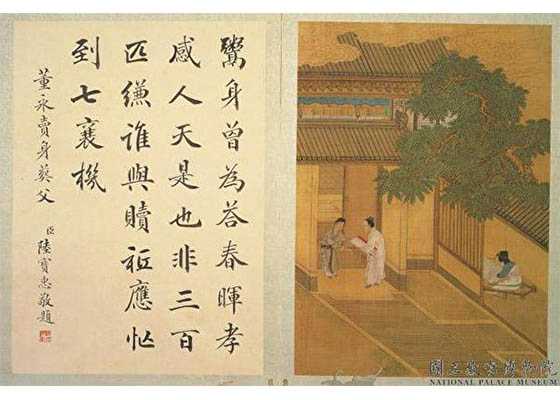 鬻身曾為荅春暉孝
感人天是也非三百
匹縑誰與贖秖應忙
到七襄機
董永賣身葬父
臣陸寶忠敬題
國立故宮博物院
NATIONAL PALACE MUSEUM